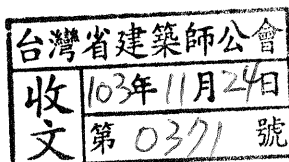 台灣省建築師公會
收文
103年11月24日
第0371號